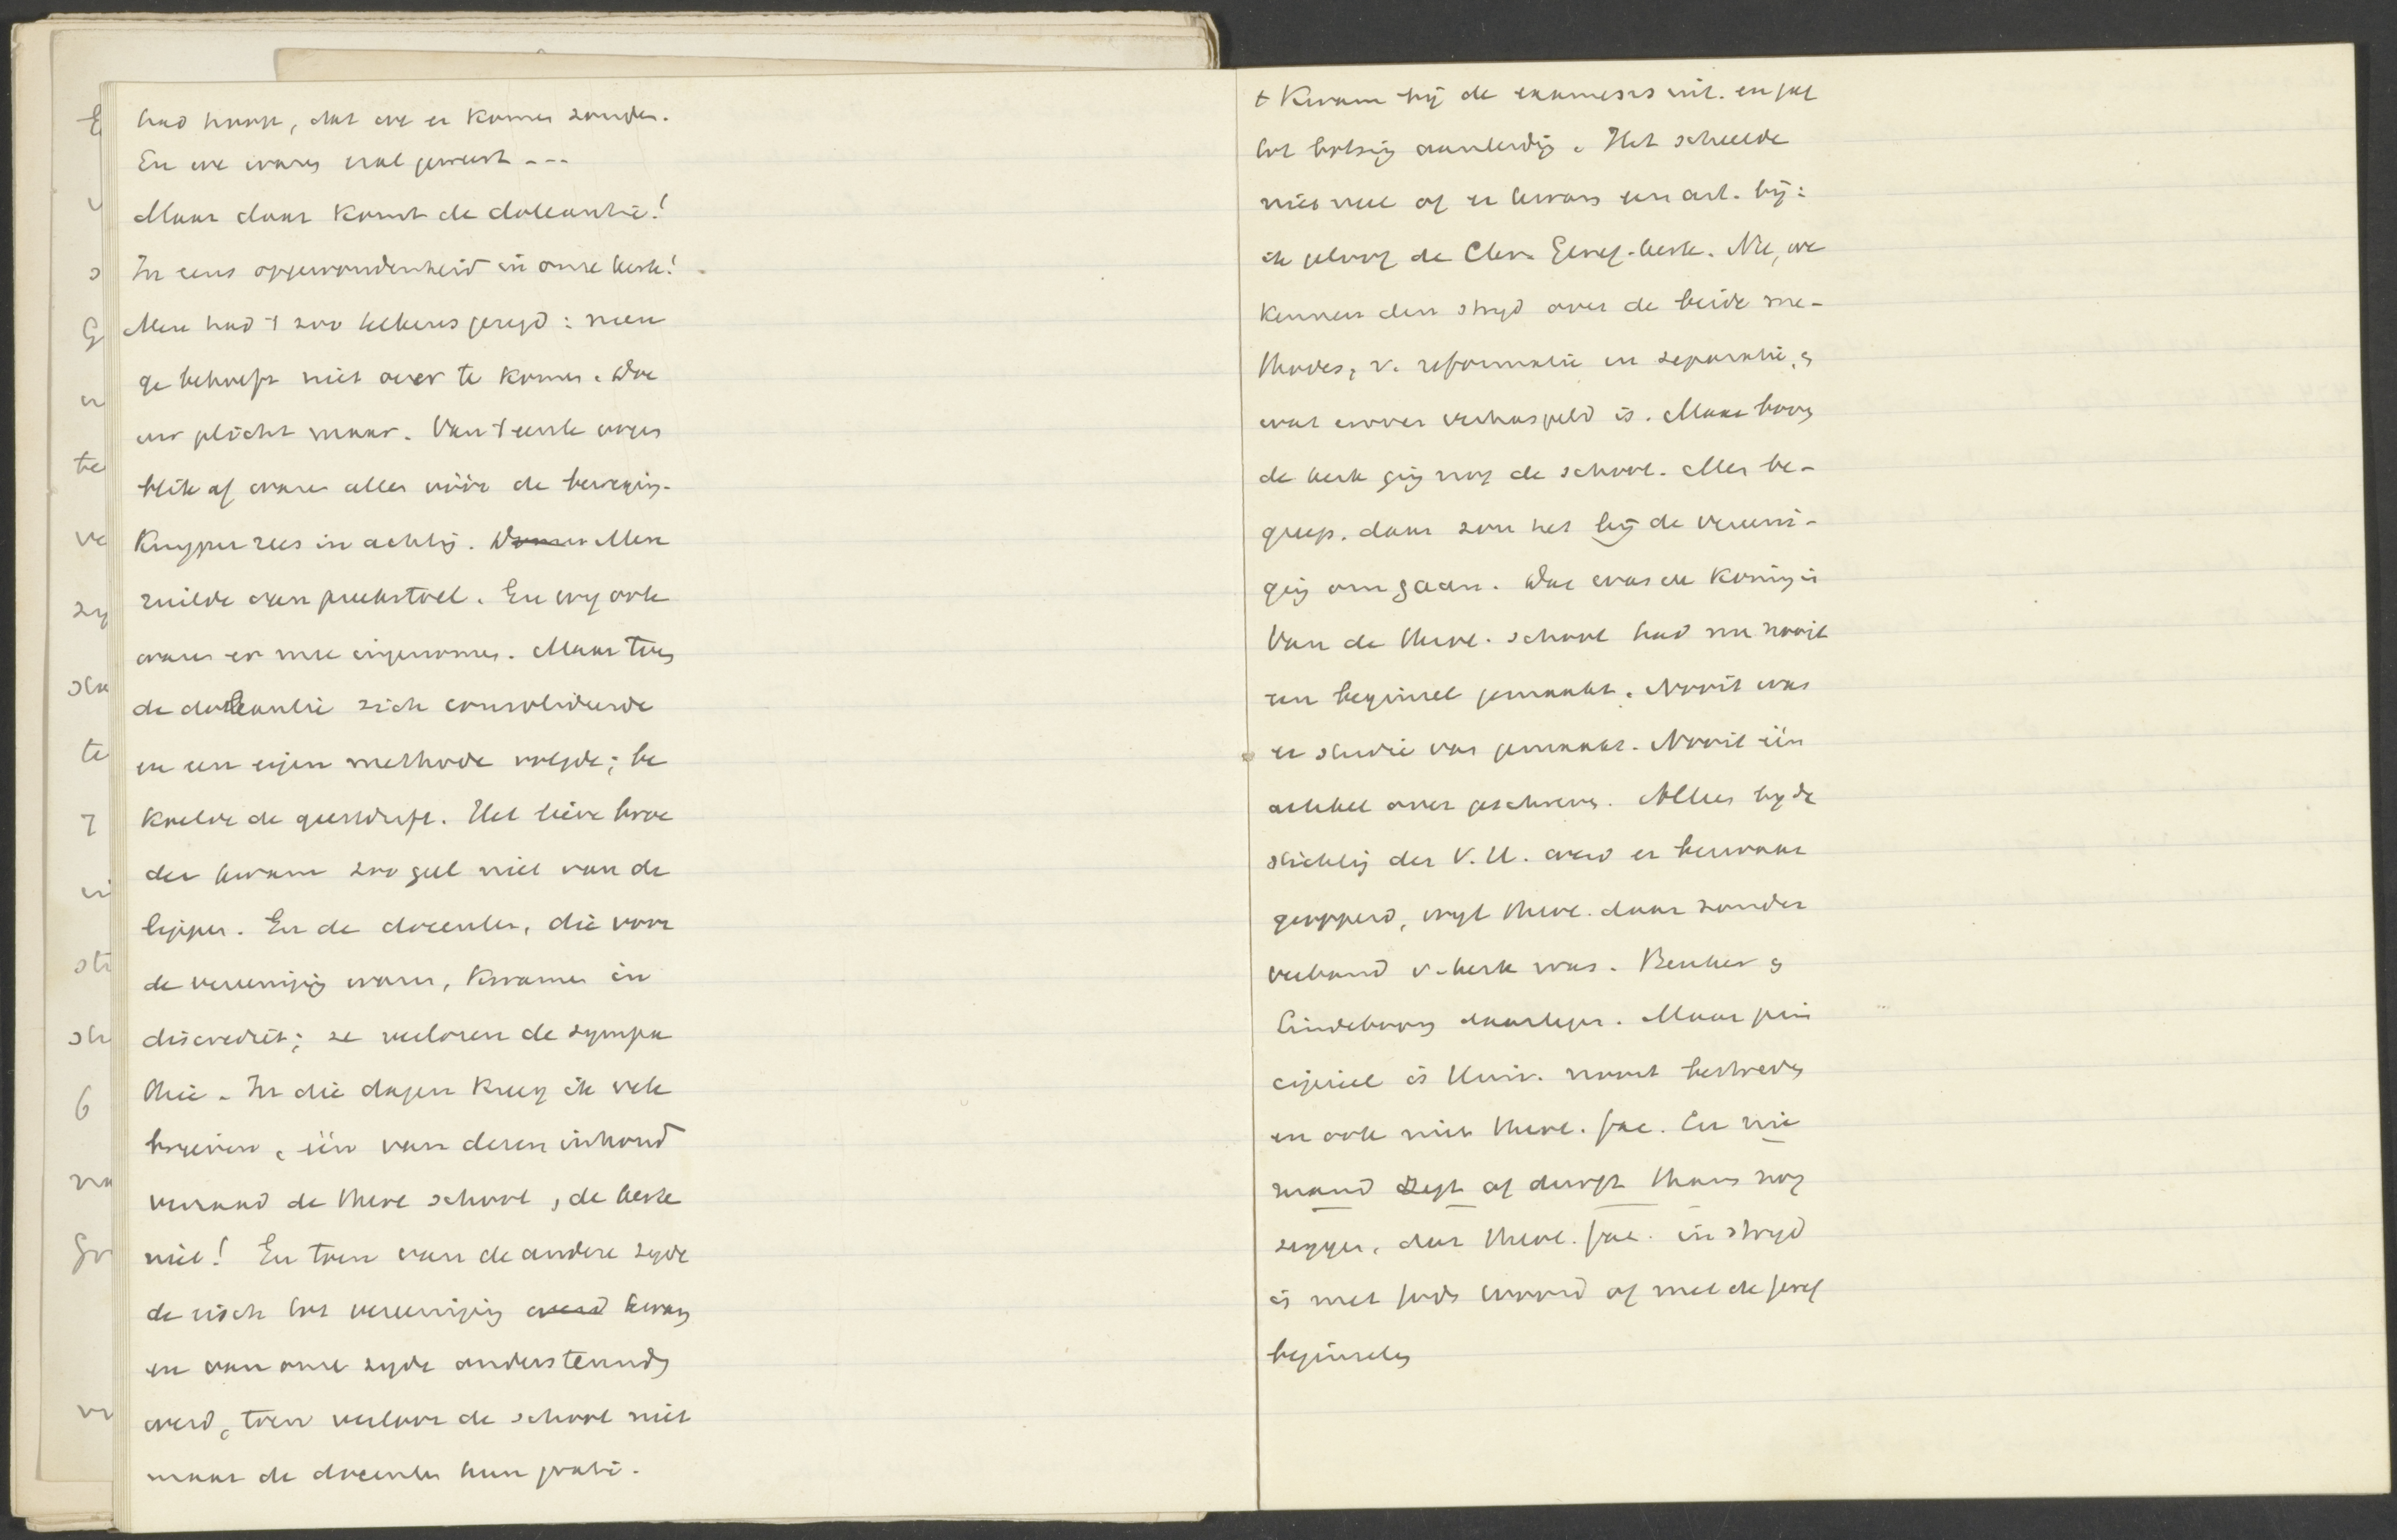 had hoop, dat we er komen zouden.
En we waren eral geweest ---
Maar daar komt de doleantie!
In eens opgewondenheid in onze kerk!
Men had 't zoo telkens gezegd: neen
ge behoeft niet over te komen. Doe
uw plicht maar. Van 't eerste oogen
blik af waren allen vóór de beweging.
Kuyper rees in achting. Men
ruilde van preekstoel. En wij ook
waren er mee ingenomen. Maar toen
de doleantie zich consolideerde
en een eigen methode volgde; be
koelde de geestdrift. Het lieve broe
der kwam zoo gul niet van de
lippen. En de docenten, die voor
de vereeniging waren, kwamen in
discrediet; ze verloren de sympa
thie. In die dagen kreeg ik vele
brieven, één van deren inhoud
verraad de theol school, de kerk
niet! En toen van de andere zyde
de eisch tot vereeniging werd kwam
en van onze zyde ondersteund
werd, toen verloor de school niet
maar de docenten hun gratie.
't Kwam bij de examens uit. en gaf
tot botsing aanleiding. Het scheelde
niet veel of er kwam een art. bij:
ik geloof de Chr. Geref. kerk. Nu, we
kennen den stryd over de beide me-
thodes, v. reformatie en separatie, en
wat erover verhaspeld is. Maar boven
de kerk ging nog de school. Men be-
greep. daar zou het bij de vereeni-
ging om gaan. Dat was de koningin
Van de theol. school had men nooit
een beginsel gemaakt. Nooit was
er studie van gemaakt. Nooit één
artikel over geschreven. Alleen by de
stichting der V.U. werd er bezwaar
geopperd, wyl theol. daar zonder
verband v. kerk was. Beuker en
Lindeboom daartegen. Maar prin
cipieel is Univ. nooit bestreden
en ook niet theol. fac. En nie
mand zegt of durft thans nog
zeggen, dat theol. fac. in stryd
is met gods woord of met de geref
beginselen